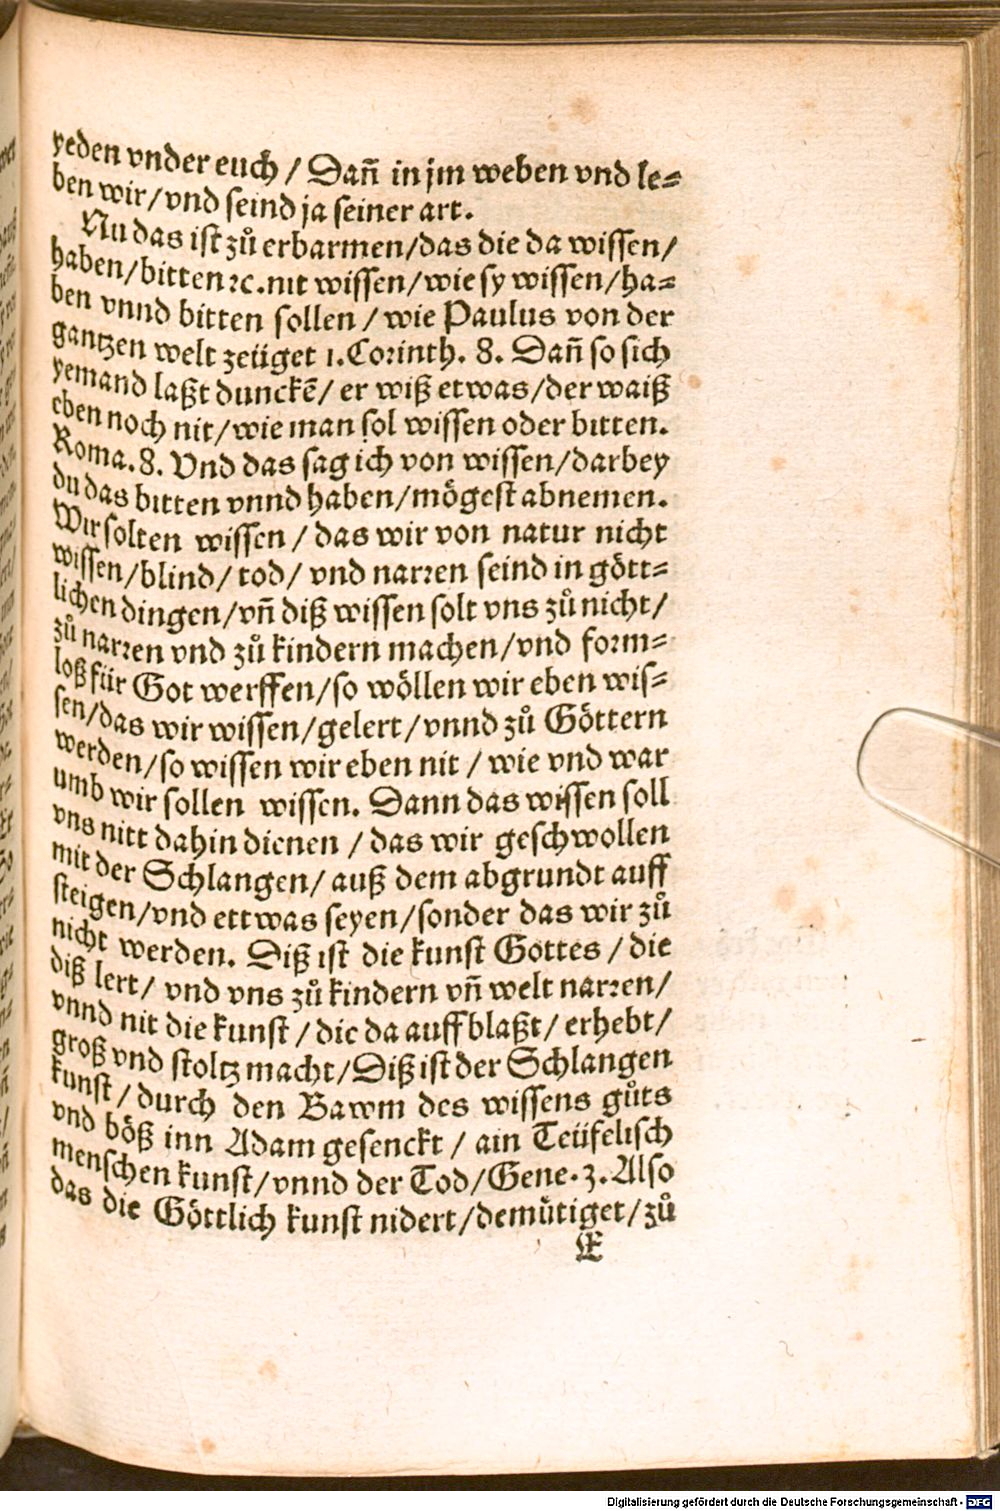 yeden vnder euch / Dañ in jm weben vnd le⸗
ben wir/vnd seind ja seiner art.
Nu das ist zů erbarmen/das die da wissen/
haben/bitten ꝛc.nit wissen/wie sy wissen/ha⸗
ben vnnd bitten sollen / wie Paulus von der
gantzen welt zeüget 1.Corinth. 8. Dañ so sich
yemand laßt dunckē/ er wiß etwas/der waiß
eben noch nit/wie man sol wissen oder bitten.
Roma.8. Vnd das sag ich von wissen/darbey
du das bitten vnnd haben/mögest abnemen.
Wir solten wissen / das wir von natur nicht
wissen/blind/tod/ vnd narꝛen seind in gött⸗
lichen dingen/vñ diß wissen solt vns zů nicht/
zů narꝛen vnd zů kindern machen/vnd form⸗
loß für Got werffen/so wöllen wir eben wis⸗
sen/das wir wissen/gelert/vnnd zů Göttern
werden/so wissen wir eben nit / wie vnd war
umb wir sollen wissen. Dann das wissen soll
vns nitt dahin dienen / das wir geschwollen
mit der Schlangen/ auß dem abgrundt auff
steigen/vnd ettwas seyen/sonder das wir zů
nicht werden. Diß ist die kunst Gottes / die
diß lert/ vnd vns zů kindern vñ welt narꝛen/
vnnd nit die kunst / die da auffblaßt/ erhebt/
groß vnd stoltz macht/Diß ist der Schlangen
kunst / durch den Bawm des wissens gůts
vnd böß inn Adam gesenckt / ain Teüfelisch
menschen kunst/vnnd der Tod/Gene.3. Also
das die Göttlich kunst nidert/demůtiget/zů
E
Digitalisierung gefördert durch die Deutsche Forschungsgemeinschaft - DFG